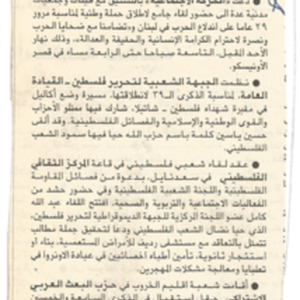 ● دعت «الحركة الاجتماعية» بالتنسيق مع هيئات وجمعيات
مدنية عدة الى حضور لقاء جامع لاطلاق حملة وطنية لمناسبة مرور
٢٩ عاما على اندلاع الحرب في لبنان «وتضامنا مع ضحايا الحرب
ونصرة لاحترام الكرامة الإنسانية والحقيقة والعدالة»، وذلك نهار
الأحد المقبل، التاسعة صباحا حتى الرابعة مساء في قصر
الأونيسكو.
● نظمت الجبهة الشعبية لتحرير فلسطين ـ القيادة
العامة، لمناسبة الذكرى الـ٣٩ لانطلاقتها، مسيرة وضع أكاليل
في مقبرة شهداء فلسطين ـ شاتيلا، شارك فيها ممثلو الأحزاب
والقوى الوطنية والإسلامية والفصائل الفلسطينية، وقد ألقى
حسين ياسين كلمة باسم حزب الله حيا فيها صمود الشعب
الفلسطيني.
● عقد لقاء شعبي فلسطيني في قاعة المركز الثقافي
الفلسطيني في سعدنايل، بدعوة من فصائل المقاومة
الفلسطينية واللجنة الشعبية الفلسطينية وفي حضور حشد من
الفعاليات الاجتماعية والتربوية والصحية، افتتح اللقاء عبد الله
كامل عضو اللجنة المركزية للجبهة الديموقراطية لتحرير فلسطين
الذي حيا نضال الشعب الفلسطيني ودعا لتحقيق جملة مطالب
تتمثل بالتعاقد مع مستشفى رديف للأمراض المستعصية، بناء او
استئجار ثانوية، تأمين أطباء اخصائيين في عيادة الاونروا في
تعلبايا ومعالجة مشكلات المهجرين.
● أقامت شعبة اقليم الخروب في حزب البعث العربي
الاشتراكي حفل استقبال في الذكرى السابعة والخمسين